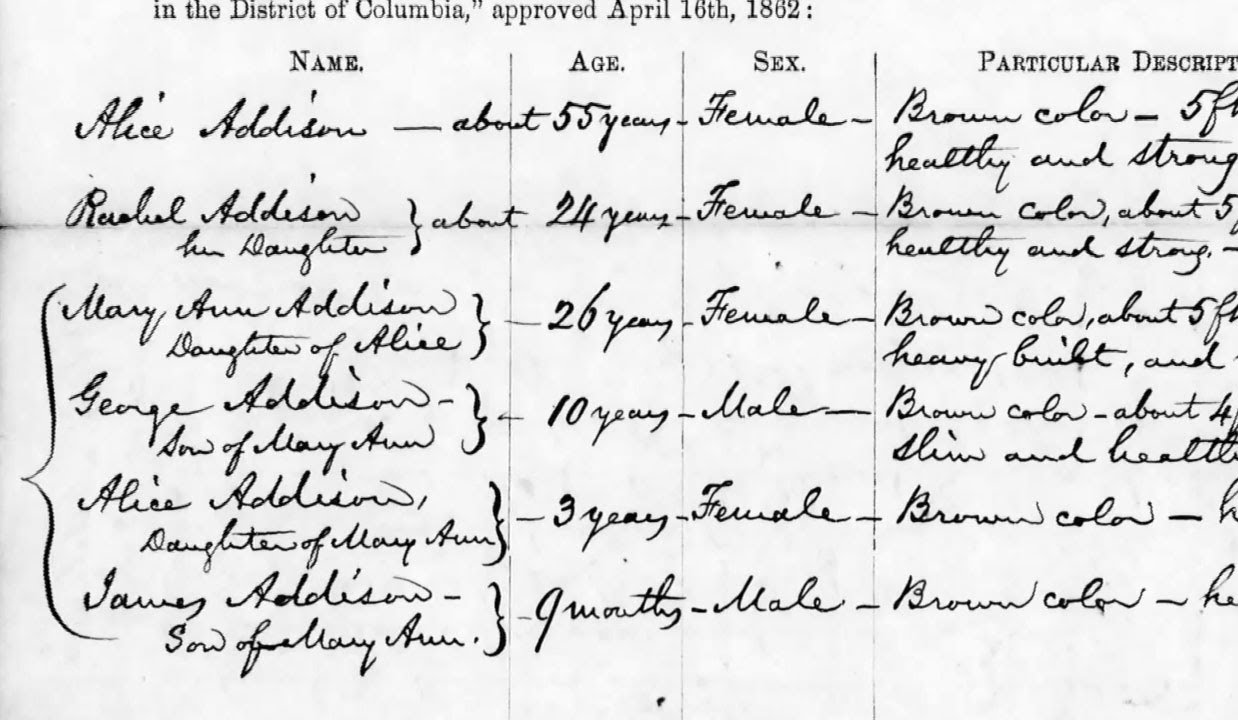 in the District of Columbia," approved April 16th, 1862:
NAME. AGE. SEX. PARTICULAR DESCRIPT
Alice Addison — about 55 years - Female - Brown color - 5ft
healthy and strong
Rachel Addison } about 24 years - Female - Brown color, about 5f
her Daughter healthy and strong. -
Mary Ann Addison } - 26 years - Female - Brown color, about 5ft
Daughter of Alice heavy built, and
George Addison - } - 10 years - Male - Brown color - about 4f
Son of Mary Ann slim and health
Alice Addison, } - 3 years - Female - Brown color - h
Daughter of Mary Ann
James Addison - } - 9 months - Male - Brown color - he
Son of Mary Ann.